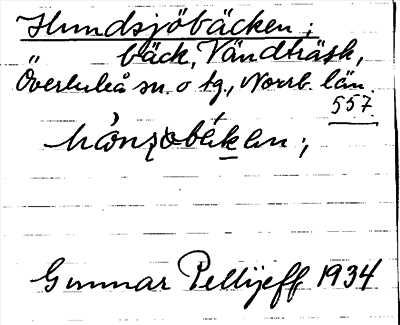 Hundsjöbäcken;
bäck, Vändträsk,
Överluleå sn. o tg., Norrb. län.
557.
Gunnar Pellijeff 1934